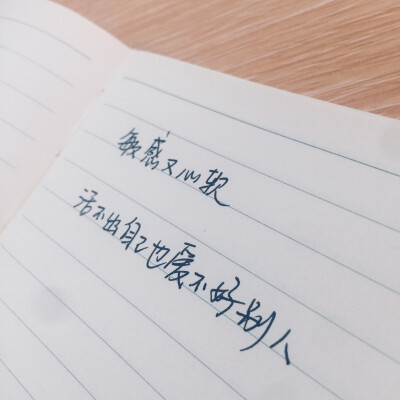 敏感又心软
活不出自己也爱不好别人